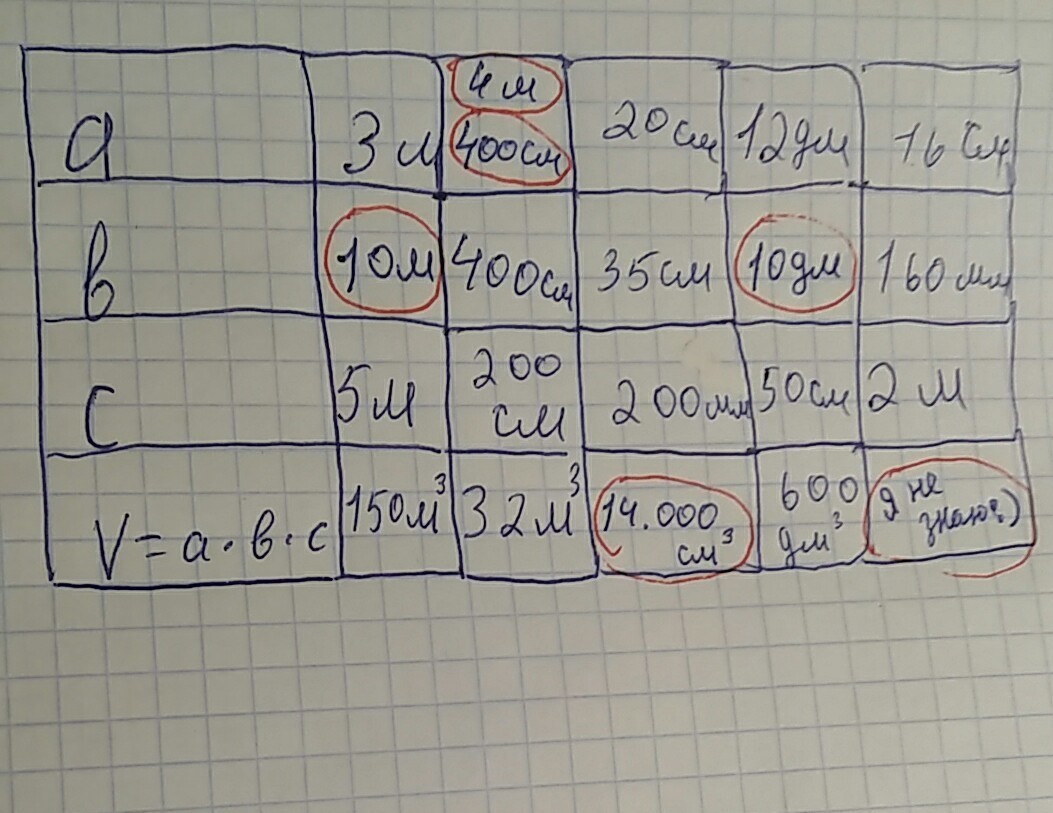 4м
a 3м 400см 20см 12дм 16см
в 10м 400см 35см 10дм 160мм
c 5м 200 см 200мм 50см 2м
V=a·в·c 150м³ 32м³ 14.000 см³ 600 дм³ я не знаю?)